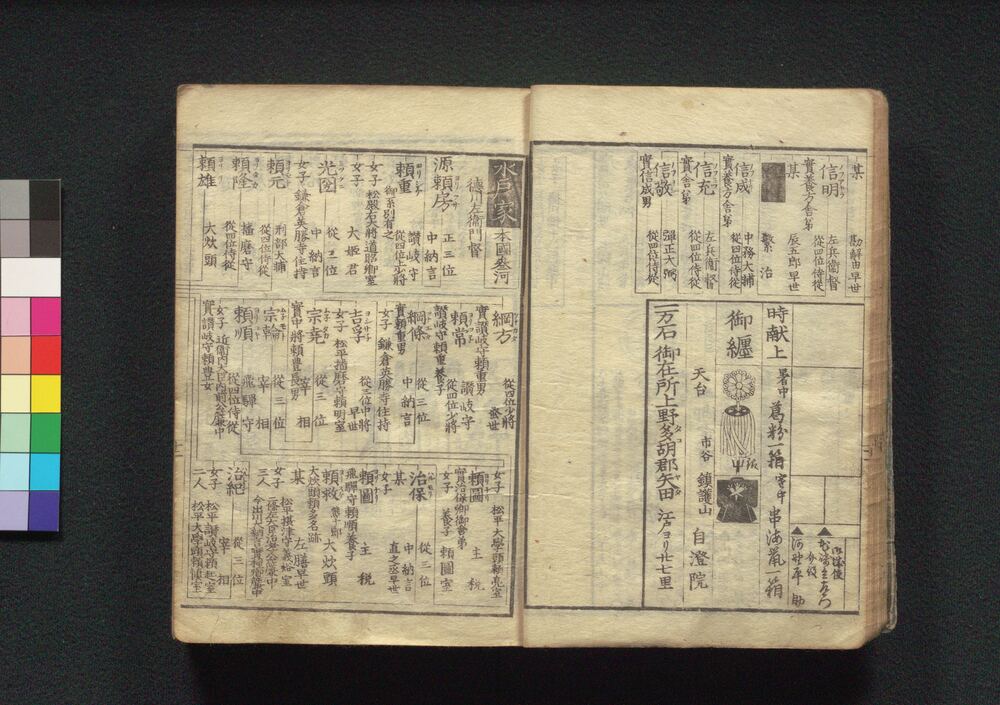 某
勘解由早世
信明
左兵衛督
從四位侍從
實養方舎弟
某
辰五郎早世
繁治
信成
中務大輔
從四位侍從
實養方舎弟
信充
左兵衛督
從四位侍從
實舎弟
信敬
彈正大弼
從四位侍從
實信成男
時献上
暑中 葛粉一箱
寒中 串海鼠一箱
御纏
天台
市谷
鎮護山
自澄院
一万石 御在所上野多胡郡矢田 江戸ヨリ廿七里
水戸家
本國叅河
徳川左衞門督
源頼房
正三位
中納言
頼重
讃岐守
從四位上少將
御系別有之
女子 松嚴右大將道昭卿室
女子 大姫君
光圀
從三位
中納言
女子 鎌倉英勝寺住持
頼元
刑部大輔
從四位侍從
頼隆
播磨守
從四位侍從
頼雄
大炊頭
綱方
從四位少將
蚤世
實讃岐守頼重男
頼常
讃岐守
從四位少將
讃岐守頼重養子
綱條
從三位
中納言
實頼重男
女子 鎌倉英勝寺住持
吉孚
從三位中將
早世
女子 松平播磨守頼明室
宗堯
從三位
宰相
實中將頼豊長男
宗翰
從三位
宰相
頼順
飛騨守
從四位侍從
女子
實讃岐守頼豊女
女子 松平大學頭頼亮室
頼圖
主税
實治保卿御舎弟
女子 養子頼圖室
治保
從三位
中納言
某
直之丞早世
女子
頼圖
主税
飛騨守頼順養子
頼救
大炊頭
大炊頭頼多名跡
某
左膳早世
女子 松平攝津守義裕室
女子
三人
治紀
從三位
宰相
女子
二人
松平讃岐守頼起室
松平大學頭頼慎室